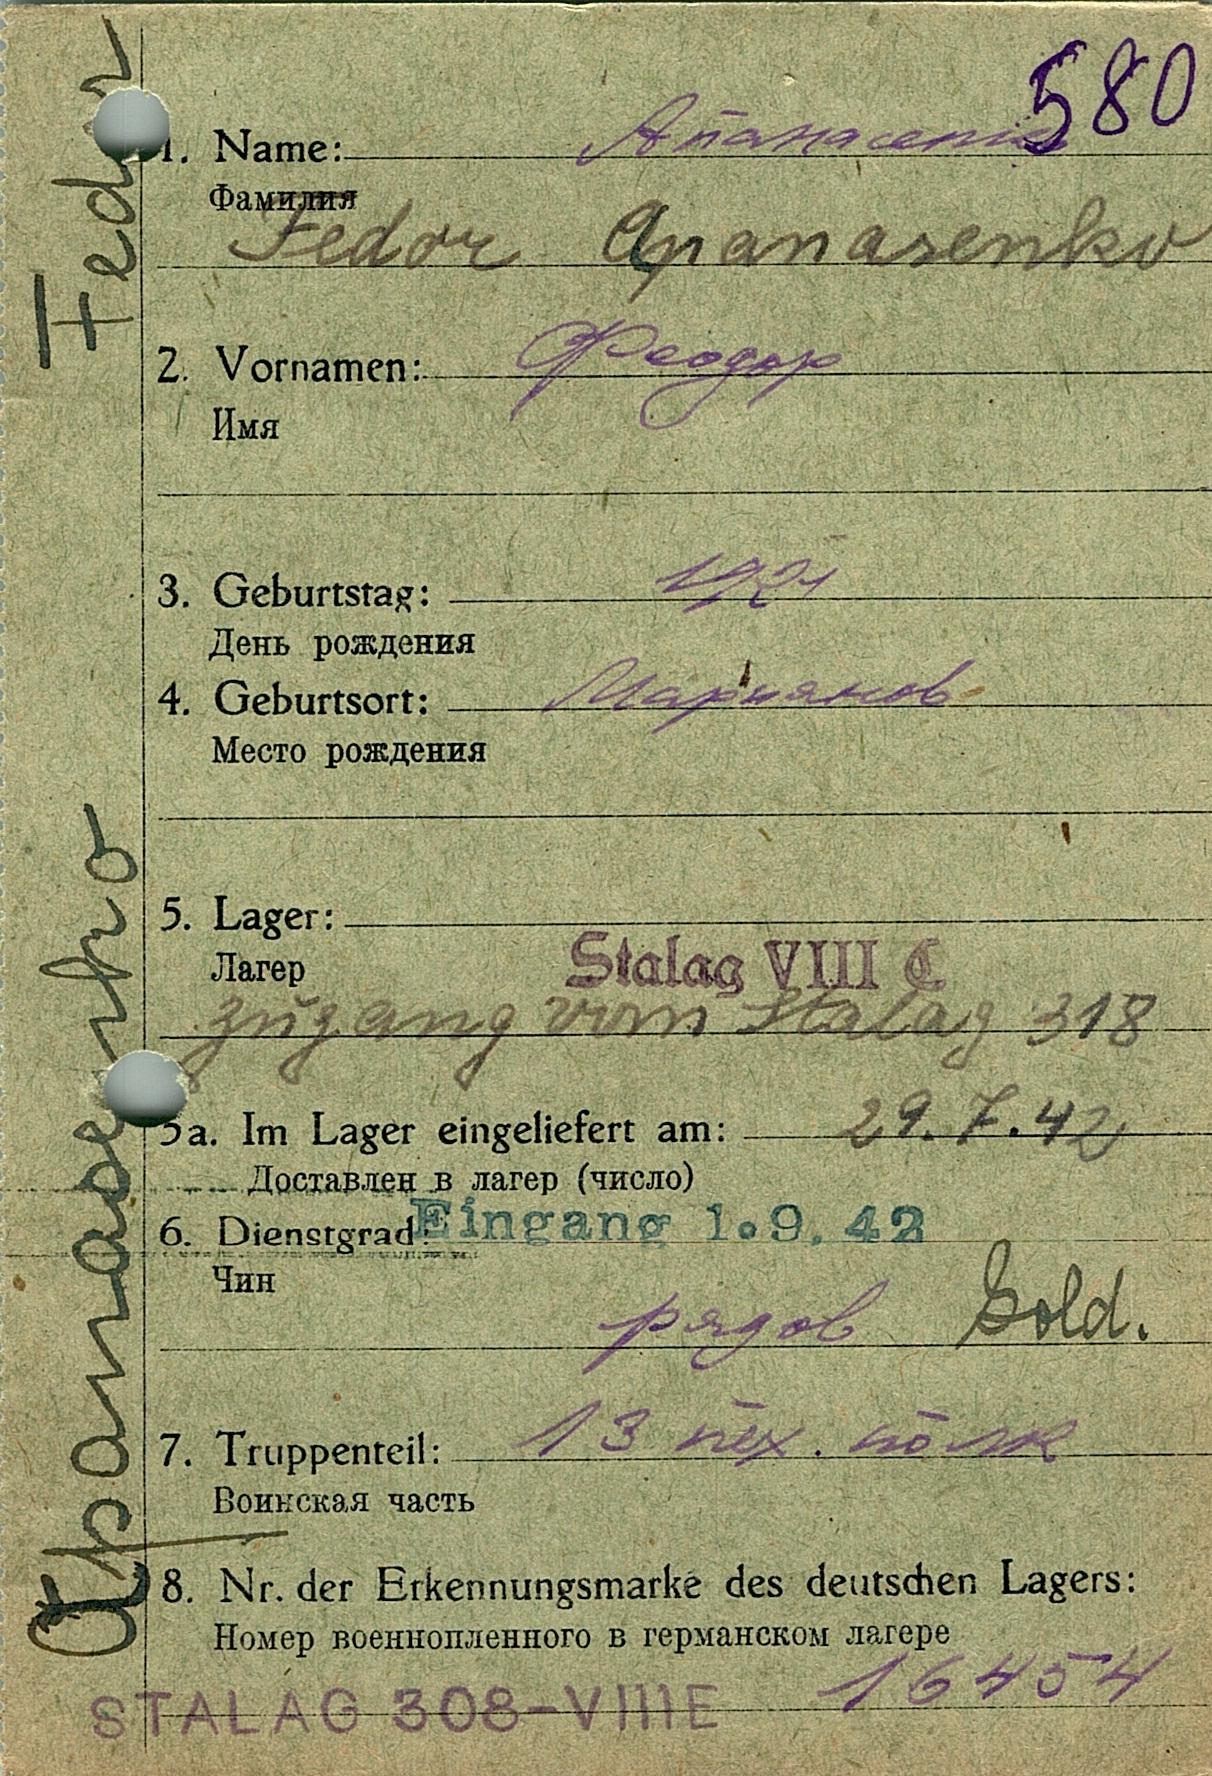 580
1. Name: Апанасенко
Фамилия
Fedor Apanasenko
2. Vornamen: Феодор
Имя
3. Geburtstag: 1921
День рождения
4. Geburtsort: Марьянов
Место рождения
5. Lager:
Лагер Stalag VIII C
Zugang vom Stalag 318
5a. Im Lager eingeliefert am: 29.7.42
Доставлен в лагер (число)
6. Dienstgrad: Eingang 1.9.42
Чин
рядов Sold.
7. Truppenteil: 13 пех. полк
Воинская часть
8. Nr. der Erkennungsmarke des deutschen Lagers:
Номер военнопленного в германском лагере
16454
STALAG 308-VIIIE
Apanasenko Fedor